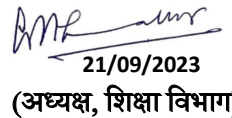 21/09/2023
(अध्यक्ष, शिक्षा विभाग)